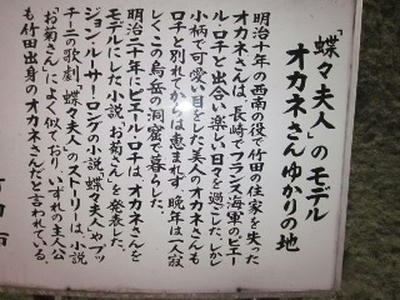 「蝶々夫人」のモデル
オカネさんゆかりの地
明治十年の西南の役で竹田の住家を失った
オカネさんは、長崎でフランス海軍のピエー
ル・ロチと出合い楽しい日々を過ごした。しかし
小柄で可愛い目をした美人のオカネさんも
ロチと別れてからは恵まれず、晩年は一人寂
しくこの烏岳の洞窟で暮らした。
明治二十年にピエール・ロチは、オカネさんを
モデルにした小説「お菊さん」を発表した。
ジョン・ルーサー・ロングの小説「蝶々夫人」やプッ
チーニの歌劇「蝶々夫人」のストーリーは、小説
「お菊さん」によく似ており、いずれの主人公
も竹田出身のオカネさんだと言われている。
竹田市